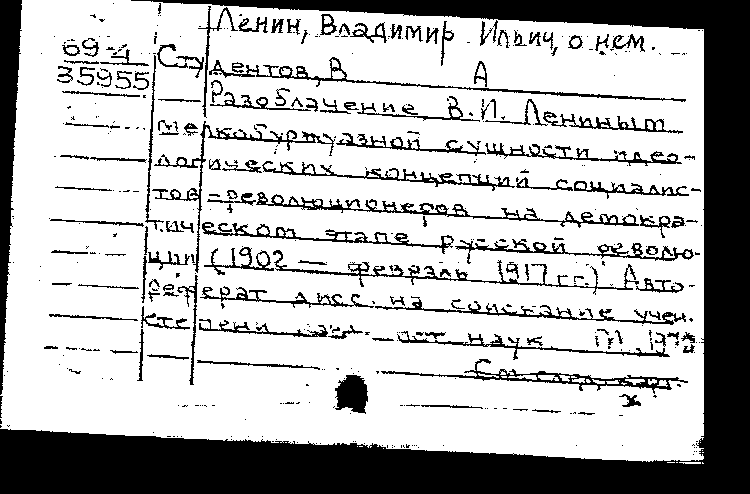 Ленин, Владимир Ильич, о нем.
69-4
35955
Студентов, В А
Разоблачение В.И. Лениным
мелкобуржуазной сущности идео-
логических концепций социалис-
тов-революционеров на демокра-
тическом этапе русской револю-
ции (1902 — февраль 1917 гг.) Авто-
реферат дисс. на соискание учен.
степени ист. наук. М., 
См. след. карт.